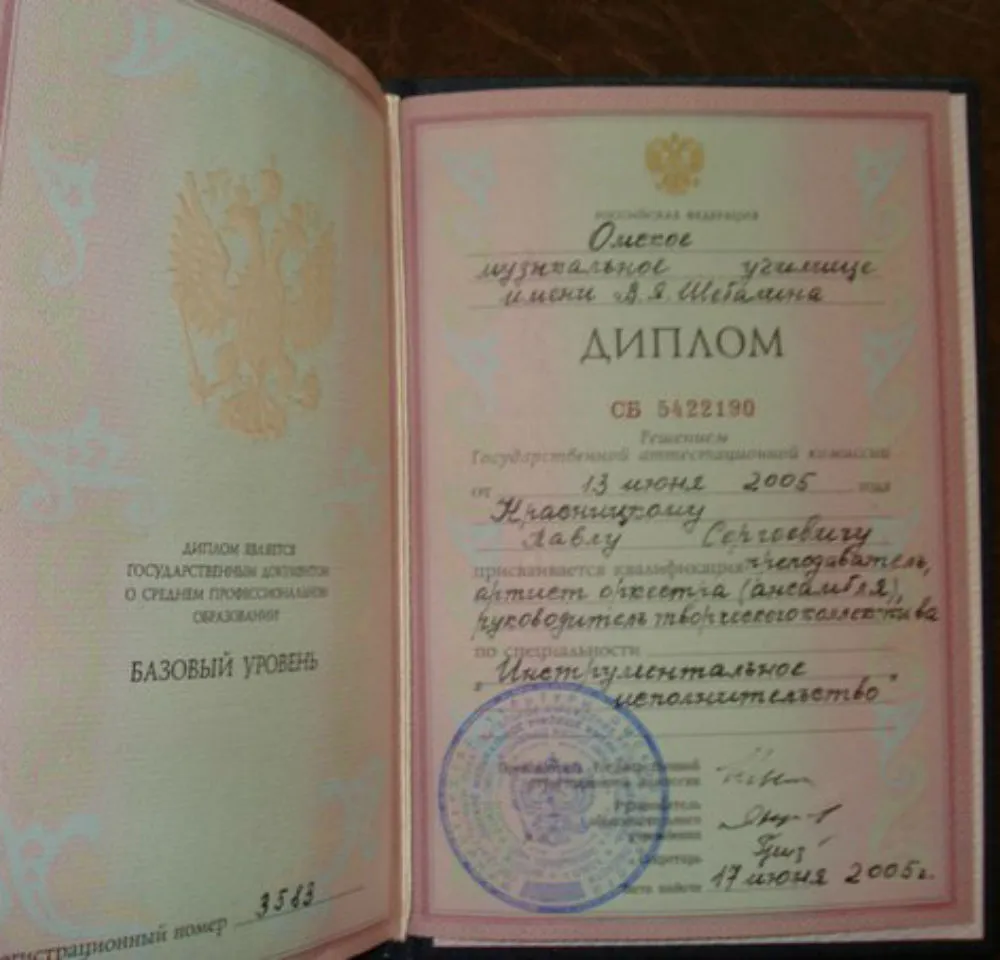 ДИПЛОМ ЯВЛЯЕТСЯ
ГОСУДАРСТВЕННЫМ ДОКУМЕНТОМ
О СРЕДНЕМ ПРОФЕССИОНАЛЬНОМ
ОБРАЗОВАНИИ
БАЗОВЫЙ УРОВЕНЬ
егистрационный номер 3583
РОССИЙСКАЯ ФЕДЕРАЦИЯ
Омское
музыкальное училище
имени В.Я. Шебалина
ДИПЛОМ
СБ 5422190
Решением
Государственной аттестационной комиссии
от 13 июня 2005 года
Красницкому
Павлу Сергеевичу
присваивается квалификация преподаватель,
артист оркестра (ансамбля),
руководитель творческого коллектива
по специальности
"Инструментальное
исполнительство"
Председатель Государственной
аттестационной комиссии
Руководитель
образовательного
учреждения
Секретарь
Дата выдачи 17 июня 2005г.